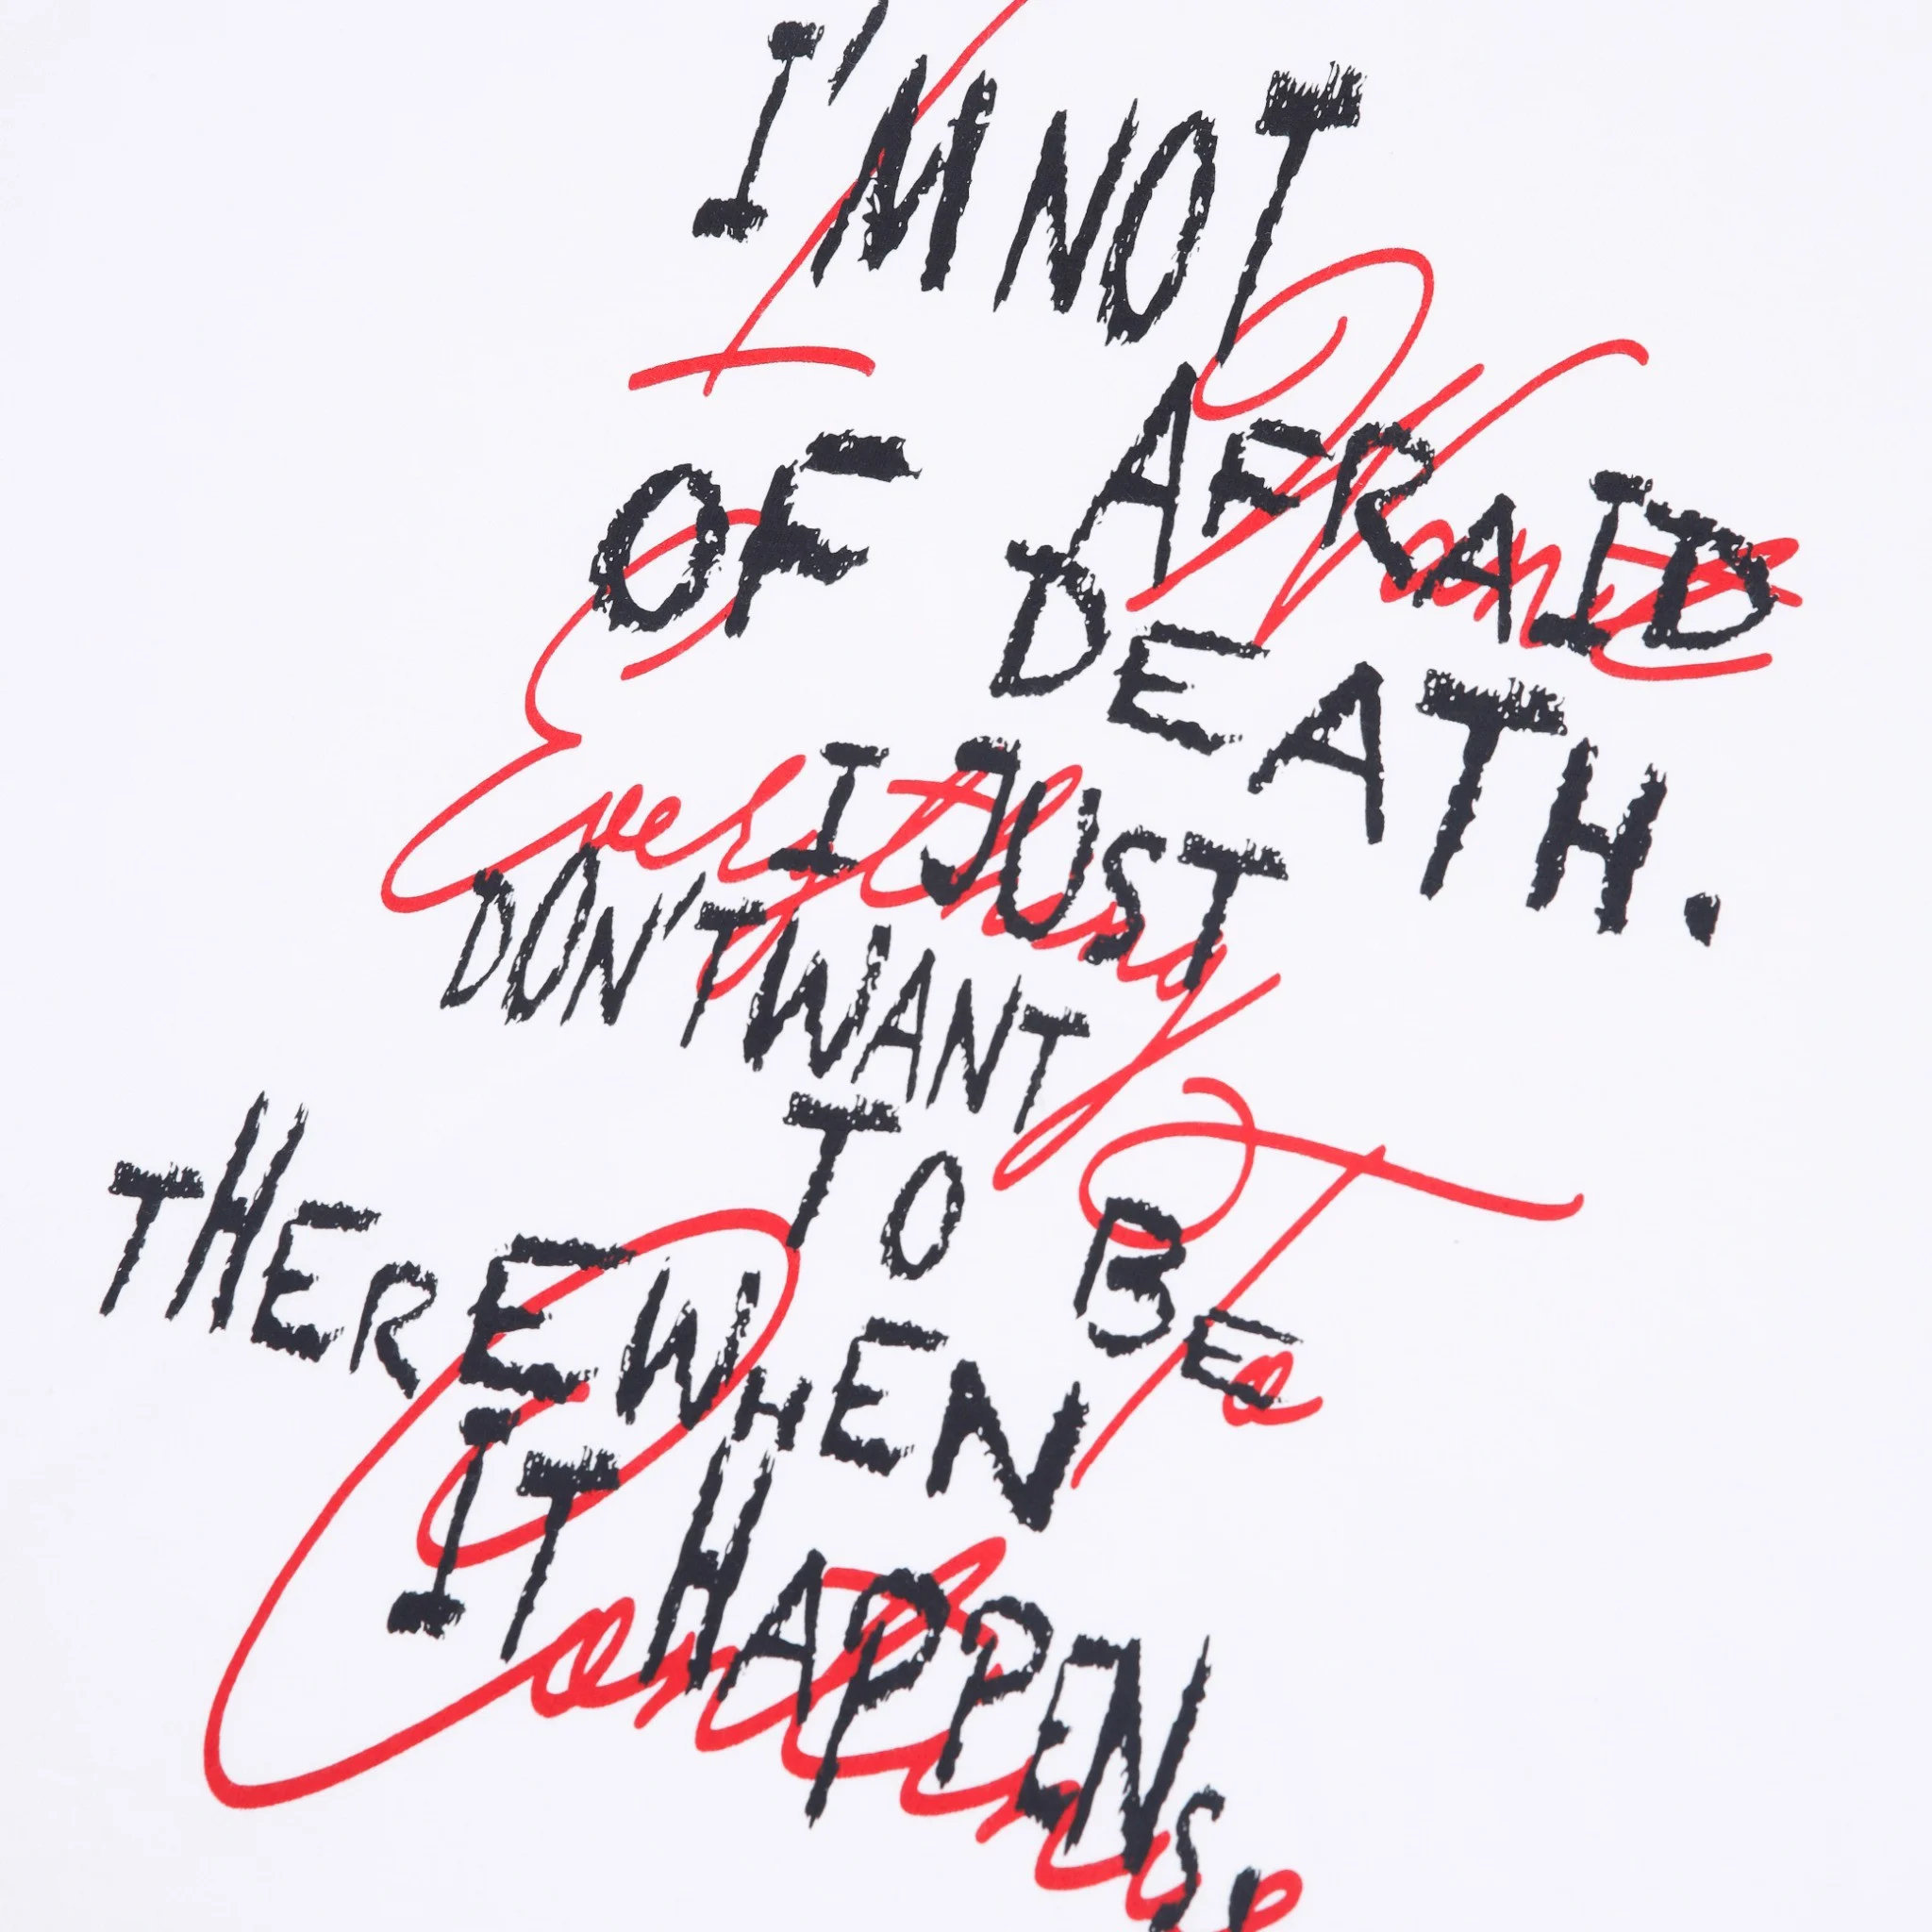 I'M NOT
AFRAID
OF DEATH.
I JUST
DON'T WANT
TO BE
THERE WHEN
IT HAPPENS.
I Want
Everything
To
Continue